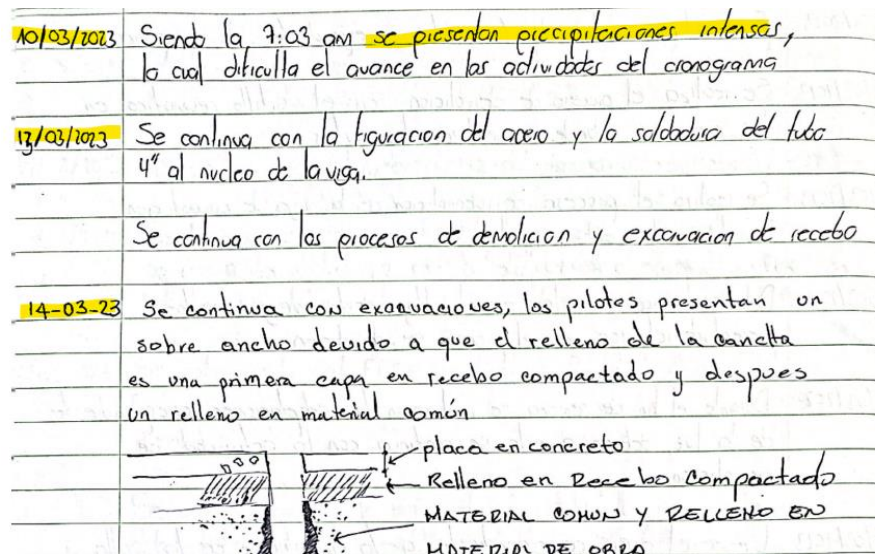 10/03/2023 Siendo la 7:03 am se presentan precipitaciones intensas,
lo cual dificulta el avance en las actividades del cronograma
13/03/2023 Se continua con la figuracion del acero y la soldadura del tubo
4" al nucleo de la viga.
Se continua con los procesos de demolicion y excavacion de recebo
14-03-23 Se continua con excavaciones, los pilotes presentan un
sobre ancho devido a que el relleno de la cancha
es una primera capa en recebo compactado y despues
un relleno en material común
placa en concreto
Relleno en Recebo Compactado
MATERIAL COMUN Y RELLENO EN
MATERIAL DE OBRA